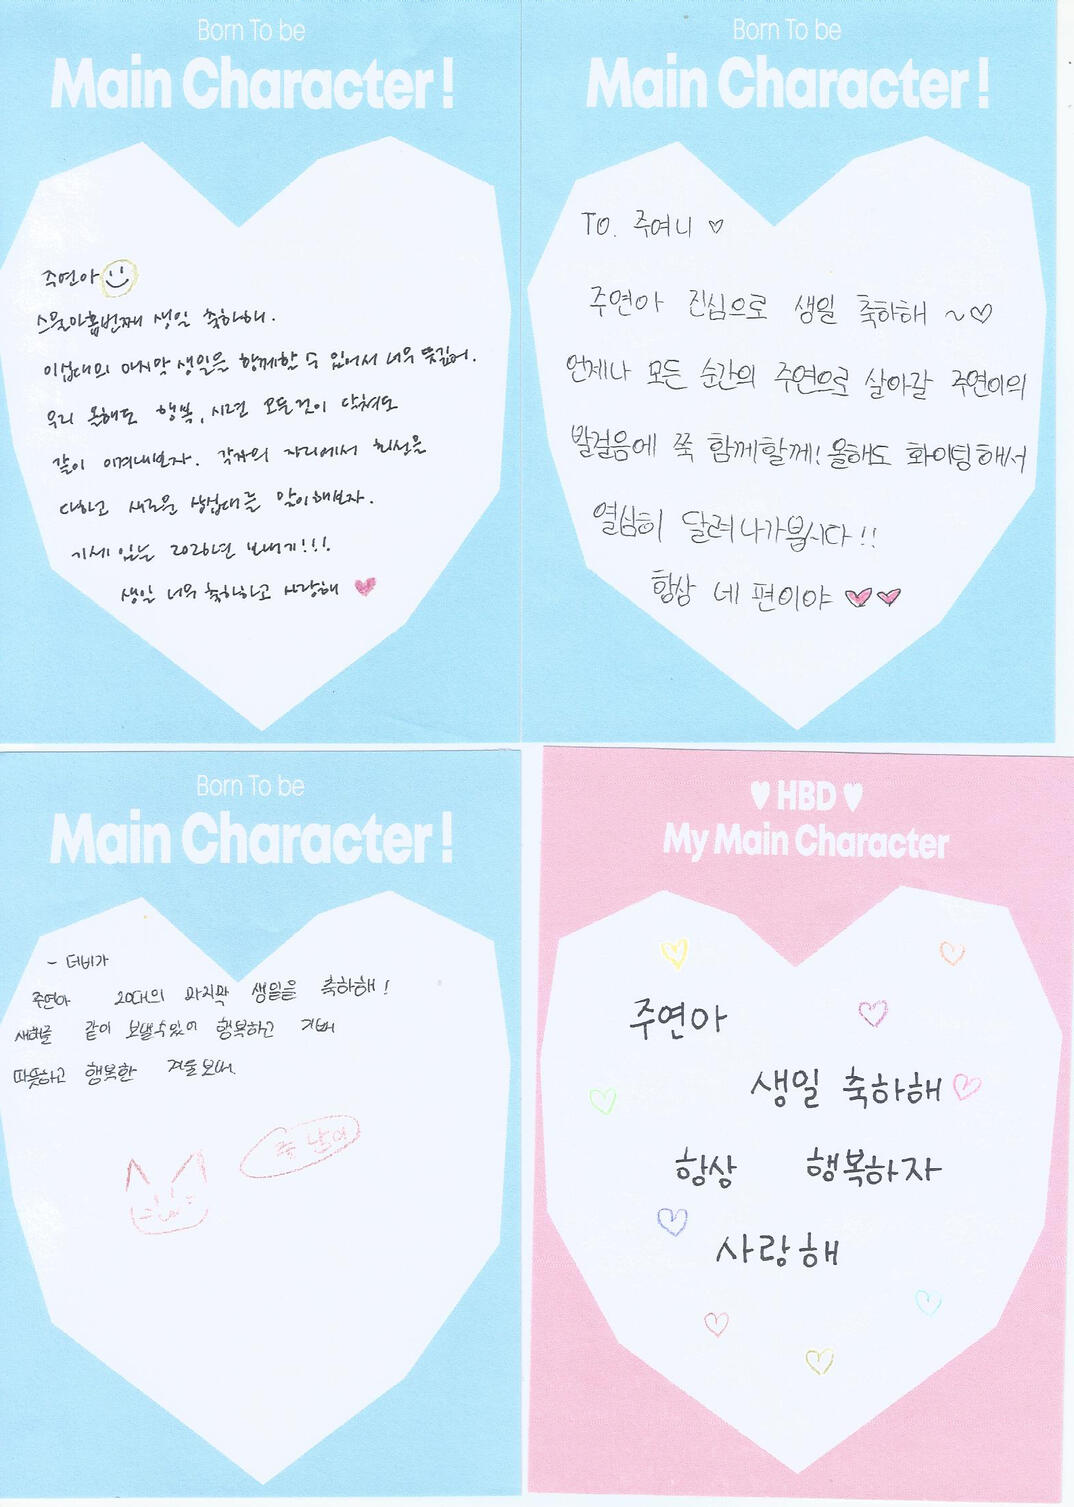 Born To be
Main Character!
주연아
스물아홉번째 생일 축하해.
이십대의 마지막 생일을 함께할 수 있어서 너무 뜻깊어.
우리 올해도 행복, 시련 모든것이 닥쳐도
같이 이겨내보자. 각자의 자리에서 최선을
다하고 새로운 삼십대를 맞이해보자.
기세 있는 2026년 보내기!!!
생일 너무 축하하고 사랑해 ♥
Born To be
Main Character!
TO. 주여니 ♡
주연아 진심으로 생일 축하해 ~♡
언제나 모든 순간의 주연으로 살아갈 주연이의
발걸음에 쭉 함께할게! 올해도 화이팅해서
열심히 달려나가봅시다!!
항상 네 편이야 ♥♥
Born To be
Main Character!
- 더비가
주연아 20대의 마지막 생일을 축하해!
새해를 같이 보낼수있어 행복하고 기뻐
따뜻하고 행복한 겨울보내.
♥ HBD ♥
My Main Character
주연아
생일 축하해
항상 행복하자
사랑해